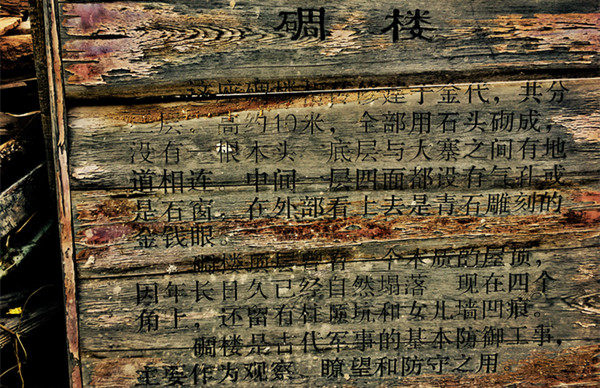 碉 楼
座碉楼 建于金代，共分
层。高约10米，全部用石头砌成，
没有一根木头 底层与大寨之间有地
道相连 中间一层四面都设有气孔或
是石窗，在外部看上去是青石雕刻的
金钱眼。
碉楼顶层曾有一个木质的屋顶，
因年长日久已经自然塌落 现在四个
角上，还留有柱 和女儿墙凹痕。
碉楼是古代军事的基本防御工事，
主要作为观察、瞭望和防守之用。